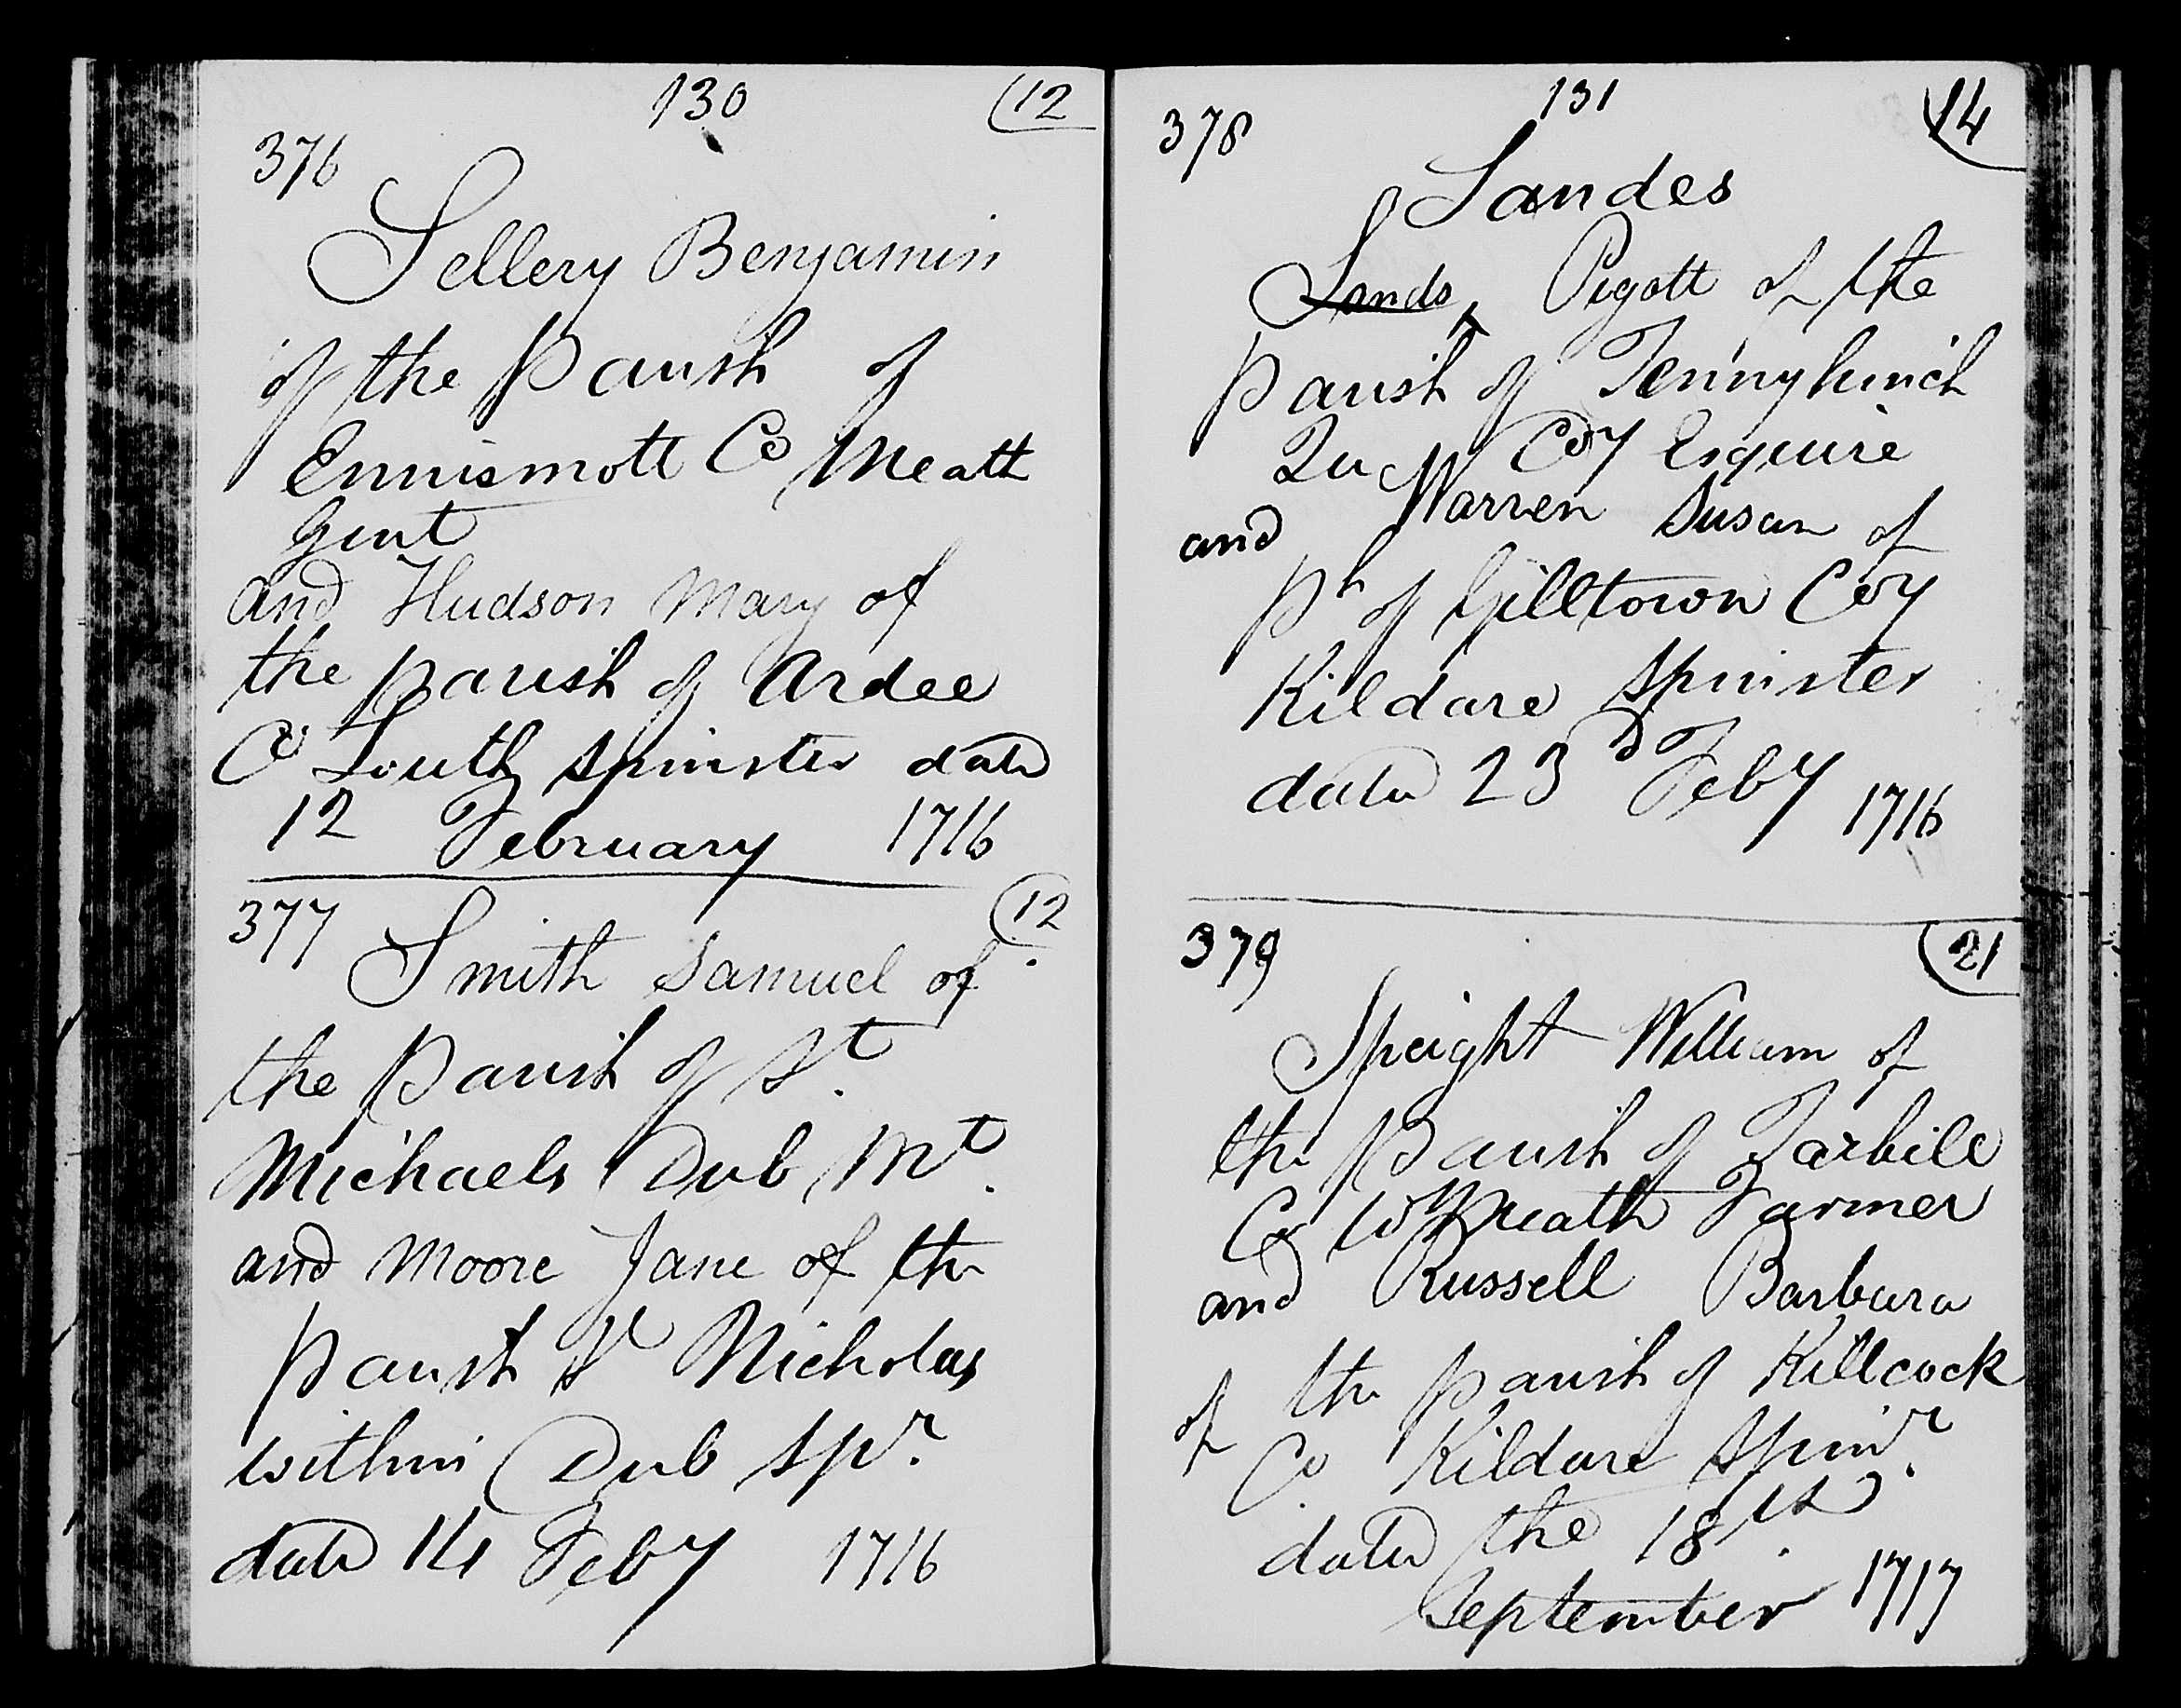 130
12
376
Sellery Benjamin
of the Parish of
Ennismott Co Meath
Gent
and Hudson Mary of
the parish of Ardee
Co Louth Spinster date
12 February 1716
377
12
Smith Samuel of
the Parish of St
Michaels Dub Mt.
and Moore Jane of the
Parish St Nicholas
within Dub Spr.
date 14 Feby 1716
131
14
378
Sandes
Sands Pigott of the
Parish of Tennyhinch
Qu Coy Esquire
and Warren Susan of
Ph of Gilltown Coy
Kildare Spinster
date 23d Feby 1716
379
21
Speight William of
the Parish of
Co Wmeath Farmer
and Russell Barbara
of the parish of Killcock
Co Kildare Spinr.
dated the 18th.
September 1717